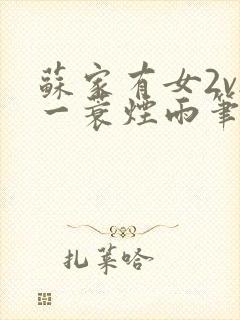 蘇家有女2v
一蓑煙雨筆
扎萊哈